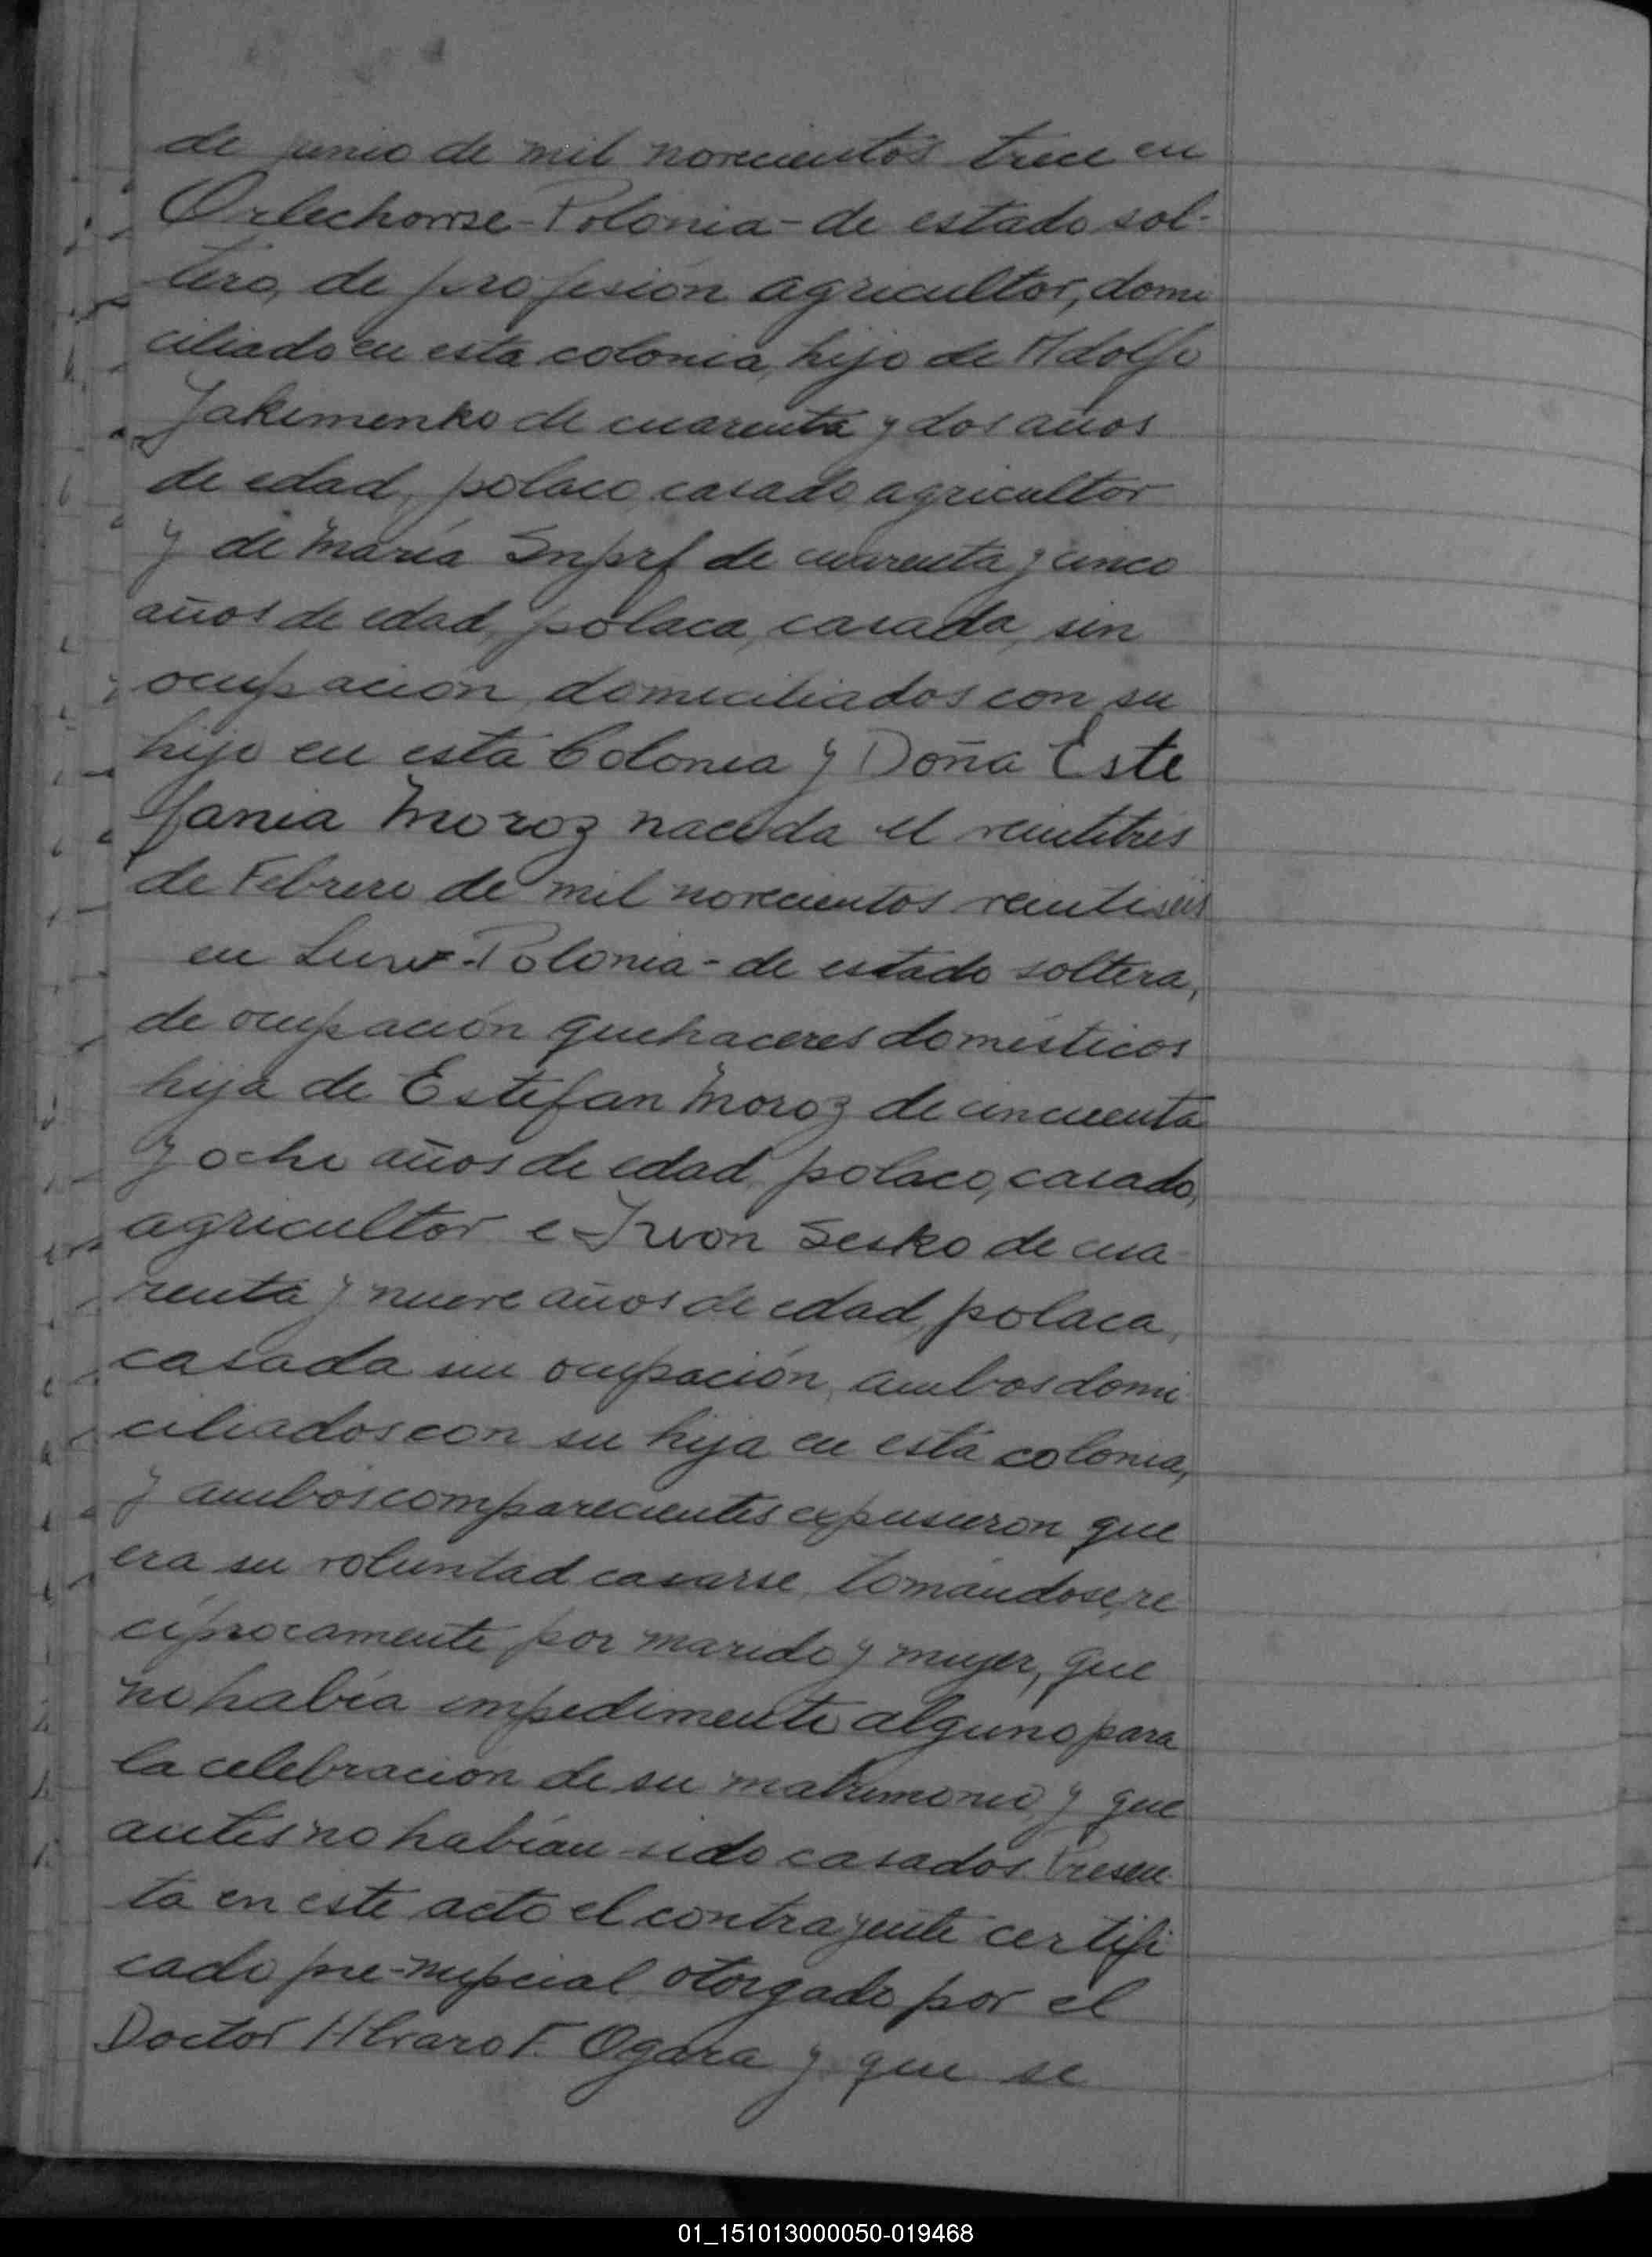 de junio de mil novecientos trece en
Orlechowse-Polonia-de estado sol-
tero, de profesión agricultor, domi
ciliado en esta colonia, hijo de Adolfo
Jakimenko de cuarenta y dos años
de edad, polaco, casado, agricultor
y de María de cuarenta y cinco
años de edad, polaca, casada, sin
ocupación, domiciliados con su
hijo en esta Colonia y Doña Este
fania Moroz nacida el veintitres
de Febrero de mil novecientos veintiseis
en -Polonia-de estado soltera,
de ocupación quehaceres domésticos
hija de Estefan Moroz de cincuenta
y ocho años de edad, polaco, casado,
agricultor e Ivon Sesko de cua
renta y nueve años de edad, polaca,
casada sin ocupación, ambos domi
ciliados con su hija en esta colonia,
y ambos comparecientes expusieron que
era su voluntad casarse, tomándose, re
ciprocamente por marido y mujer, que
no había impedimento alguno para
la celebración de su matrimonio y que
antes no habían sido casados. Presen-
ta en este acto el contrayente certifi
cado pre-nupcial otorgado por el
Doctor Alvaro F. Ogara y que se
01_151013000050-019468